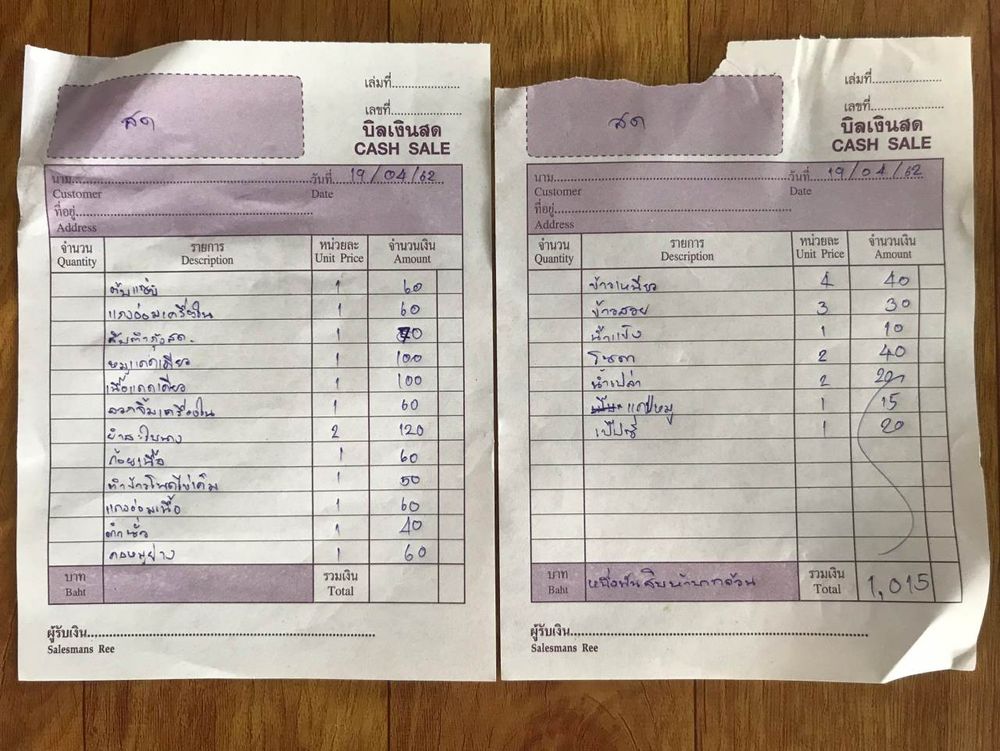 สด
เล่มที่
เลขที่
บิลเงินสด
CASH SALE
นาม วันที่ 19/04/62
Customer Date
ที่อยู่
Address
จำนวน รายการ หน่วยละ จำนวนเงิน
Quantity Description Unit Price Amount
ตับแซ่บ 1 60
แกงอ่อมเครื่องใน 1 60
1 70
หมูแดดเดียว 1 100
เนื้อแดดเดียว 1 100
ลวกจิ้มเครื่องใน 1 60
2 120
ก้อยเนื้อ 1 60
ตำข้าวโพดไข่เค็ม 1 50
แกงอ่อมเนื้อ 1 60
ตำซั่ว 1 40
คอหมูย่าง 1 60
บาท รวมเงิน
Baht Total
ผู้รับเงิน
Salesmans Ree
สด
เล่มที่
เลขที่
บิลเงินสด
CASH SALE
นาม วันที่ 19/04/62
Customer Date
ที่อยู่
Address
จำนวน รายการ หน่วยละ จำนวนเงิน
Quantity Description Unit Price Amount
ข้าวเหนียว 4 40
ข้าวสวย 3 30
น้ำแข็ง 1 10
โซดา 2 40
น้ำเปล่า 2 20
แคปหมู 1 15
เป๊ปซี่ 1 20
บาท หนึ่งพันสิบห้าบาทถ้วน รวมเงิน 1,015
Baht Total
ผู้รับเงิน
Salesmans Ree